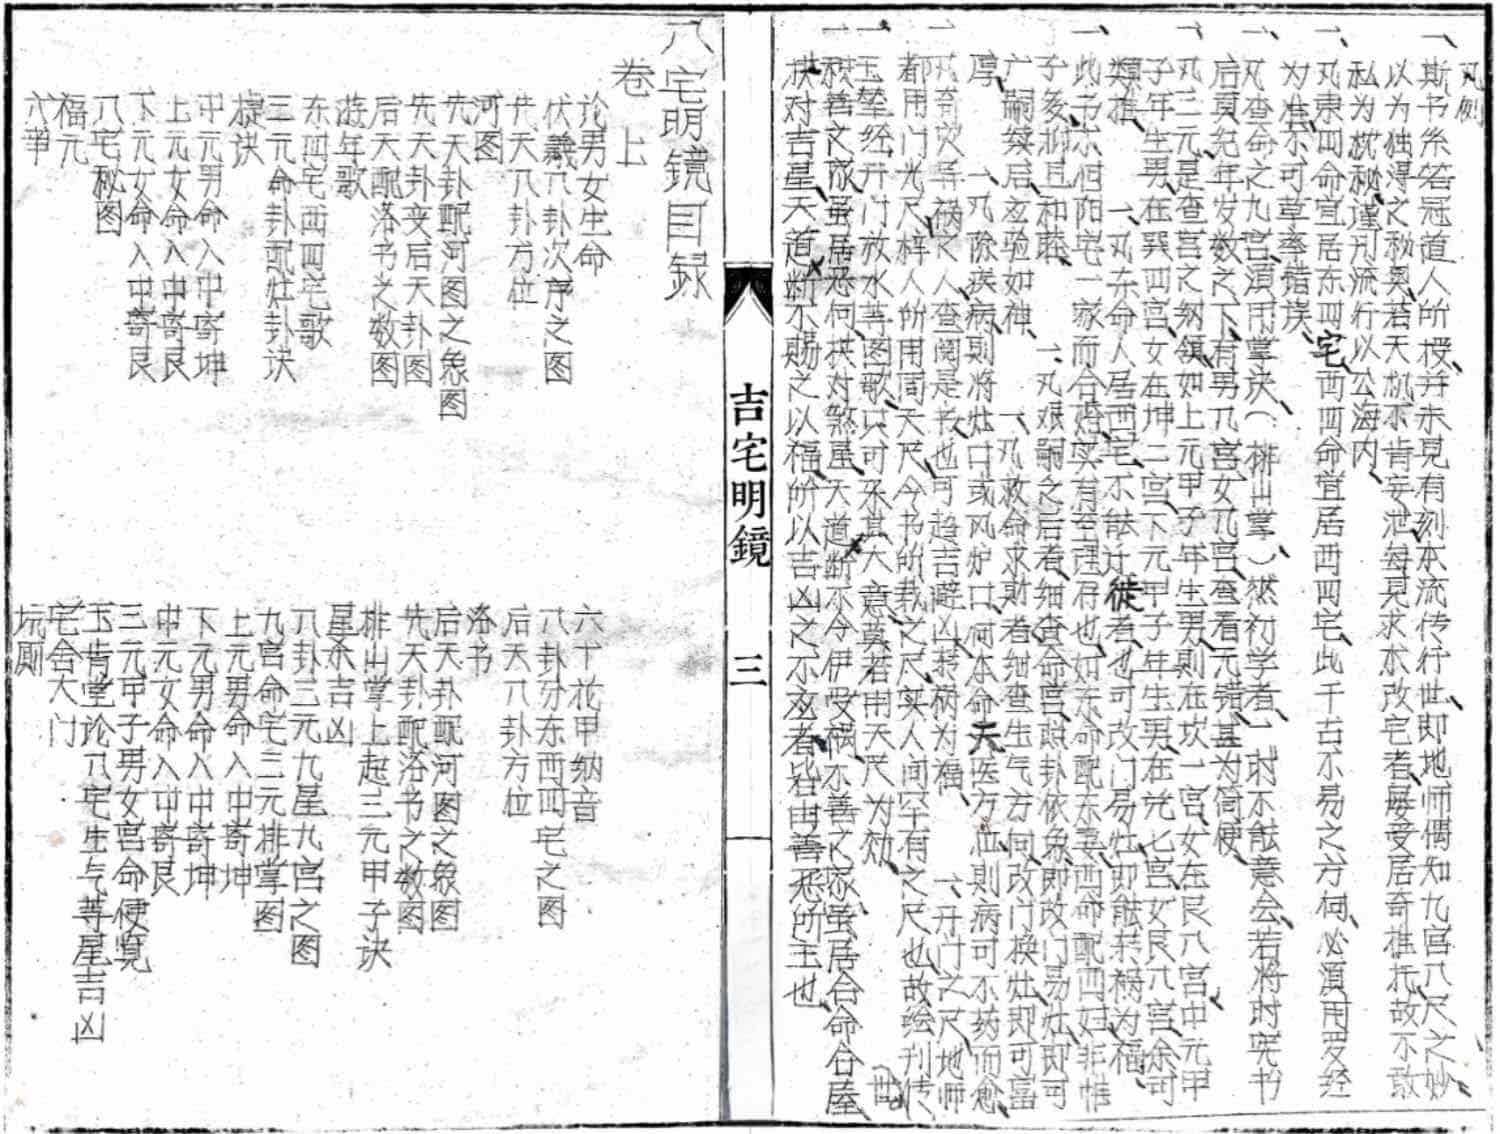 凡例
一、斯书系若冠道人所授、并未见有刻本流传行世、即地师偶知九宫八尺之妙、
以为独得之秘奥、若天机不肯妄泄、每见求永改宅者、屡受居奇推托、故不敢
私为枕秘、谨刊流行、以公海内、
一、凡东四命宜居东四宅、西四命宜居西四宅、此千古不易之方向、必须用罗经
为准、不可草率错误、
一、凡查命之九宫、须用掌决（排山掌）然初学者、一时不能意会、若将时宪书
后页纪年岁数之下、有男几宫、女几宫、查看无错、甚为简便、
一、凡三元、是查宫之纲领、如上元甲子年生男、则在坎一宫、女在艮八宫、中元甲
子年生男、在巽四宫、女在坤二宫、下元甲子年生男、在兑七宫、女艮八宫、余可
类推、 一、凡东命人居西宅、不能迁徙者、也可改门易灶、即能转祸为福、
一、此书不但阳宅一家、而合婚实有至理存也、如东命配东妻、西命配西妇、非惟
子多、抑且和睦、 一、凡艰嗣之后者、细查命宫、照卦依象、即改门易灶、即可
广嗣、察后玄验如神、 一、凡救命求财者、细查生气方向、改门换灶、即可富
厚、 一、凡除疾病、则将灶口或风炉口、向本命天医方、血则病可不药而愈、
一、凡奇灾异祸、人查阅是书、也可趋吉避凶、转祸为福、 一、开门之尺、地师
都用门光尺、梓人所用周天尺、今书所载之尺、实人间罕有之尺也、故绘刊传世
一、玉辇经开门放水等图歌、只可采其大意、莫若用天尺为効、
一、积善之家、虽居恶向、拱对煞星、天道断不令伊受祸、不善之家、虽居合命合屋、
拱对吉星、天道断不赐之以福、所以吉凶之不玄者、皆由善恶所主也、
吉宅明鏡
三
八宅明鏡目録
卷上
论男女生命
六十花甲纳音
伏羲八卦次序之图
八卦分东西四宅之图
先天八卦方位
后天八卦方位
河图
洛书
先天卦配河图之象图
后天卦配河图之象图
先天卦变后天卦图
先天卦配洛书之数图
后天卦配洛书之数图
排山掌上起三元甲子诀
游年歌
星煞吉凶
东四宅西四宅歌
八卦三元九星九宫之图
三元命卦配灶卦诀
九宫命宅三元排掌图
捷诀
上元男命入中寄坤
中元男命入中寄坤
下元男命入中寄坤
上元女命入中寄艮
中元女命入中寄艮
下元女命入中寄艮
三元甲子男女宫命便览
八宅秘图
玉肯堂论八宅生气等星吉凶
福元
宅舍大门
六事
坑厕